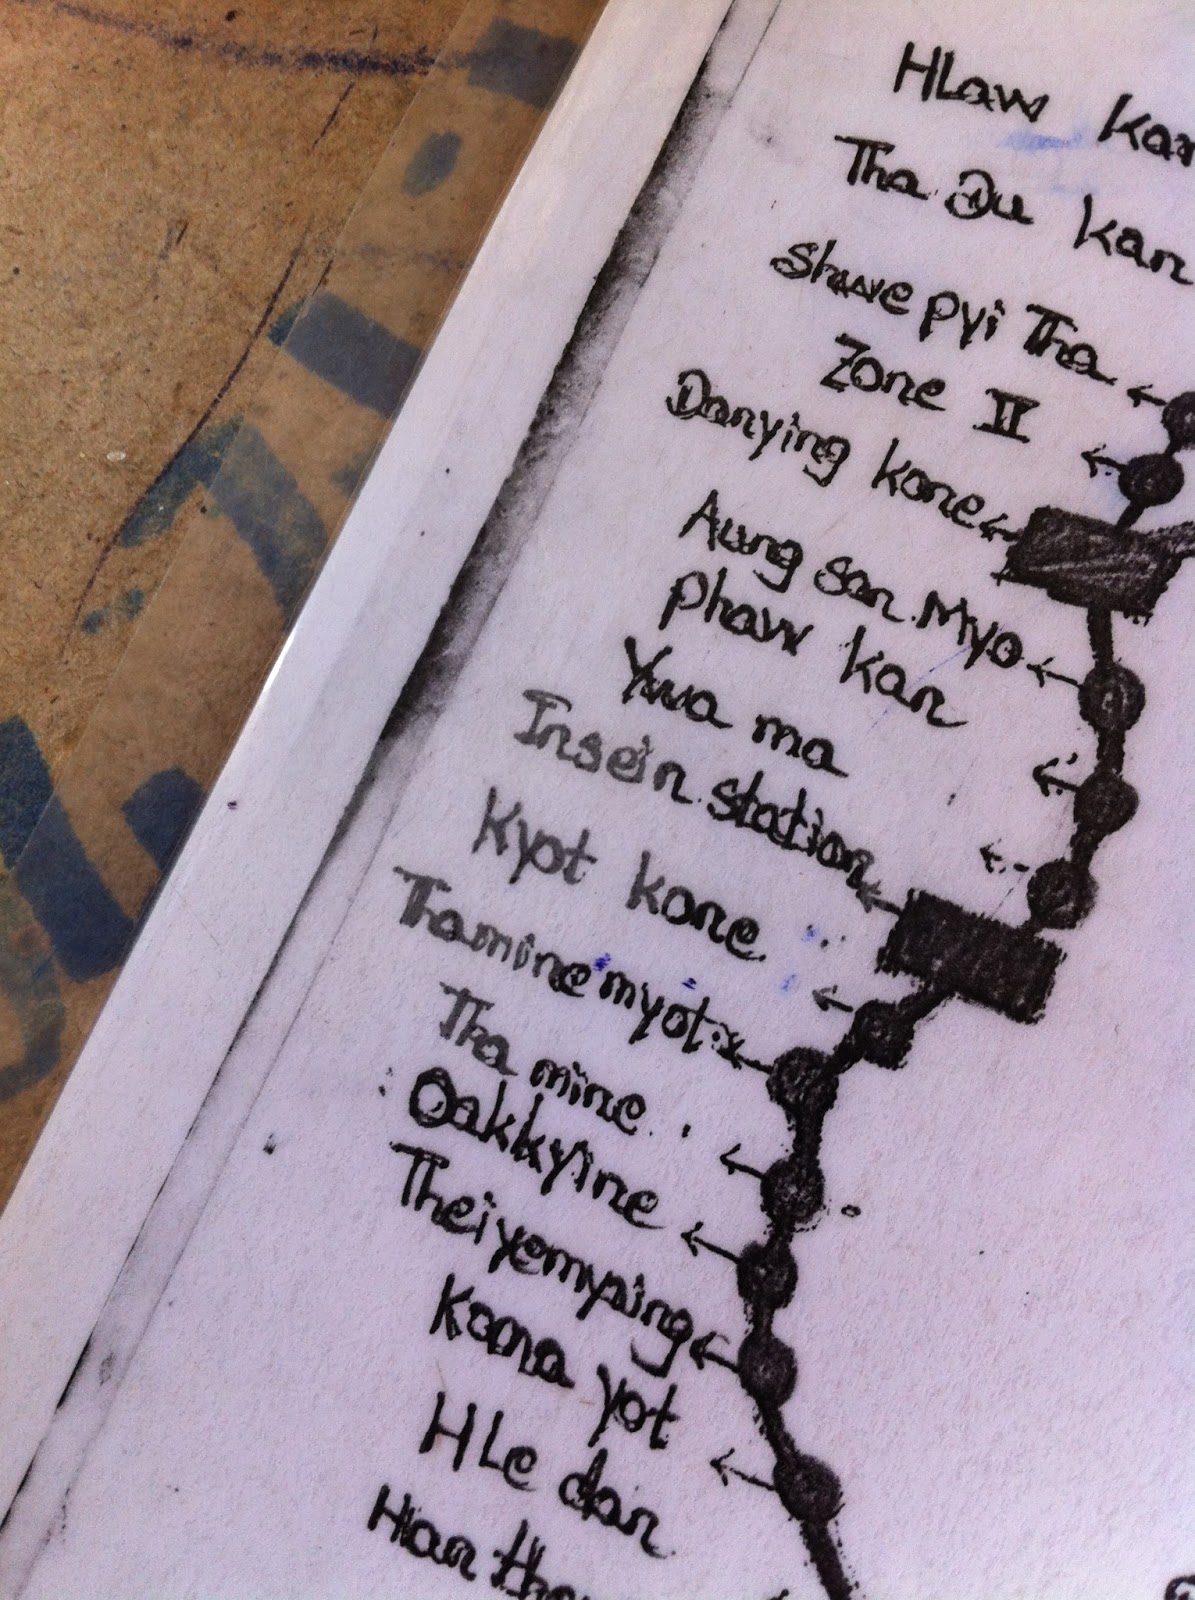 HLaw
Tha Du kan
shwe pyi Tha
Zone II
Danying kone
Aung san Myo
phaw kan
Ywa ma
Insein station
Kyot kone
Thamine myot
Tha mine
Oakkyine
Theiyemyaing
Kama yot
HLe dan
Han